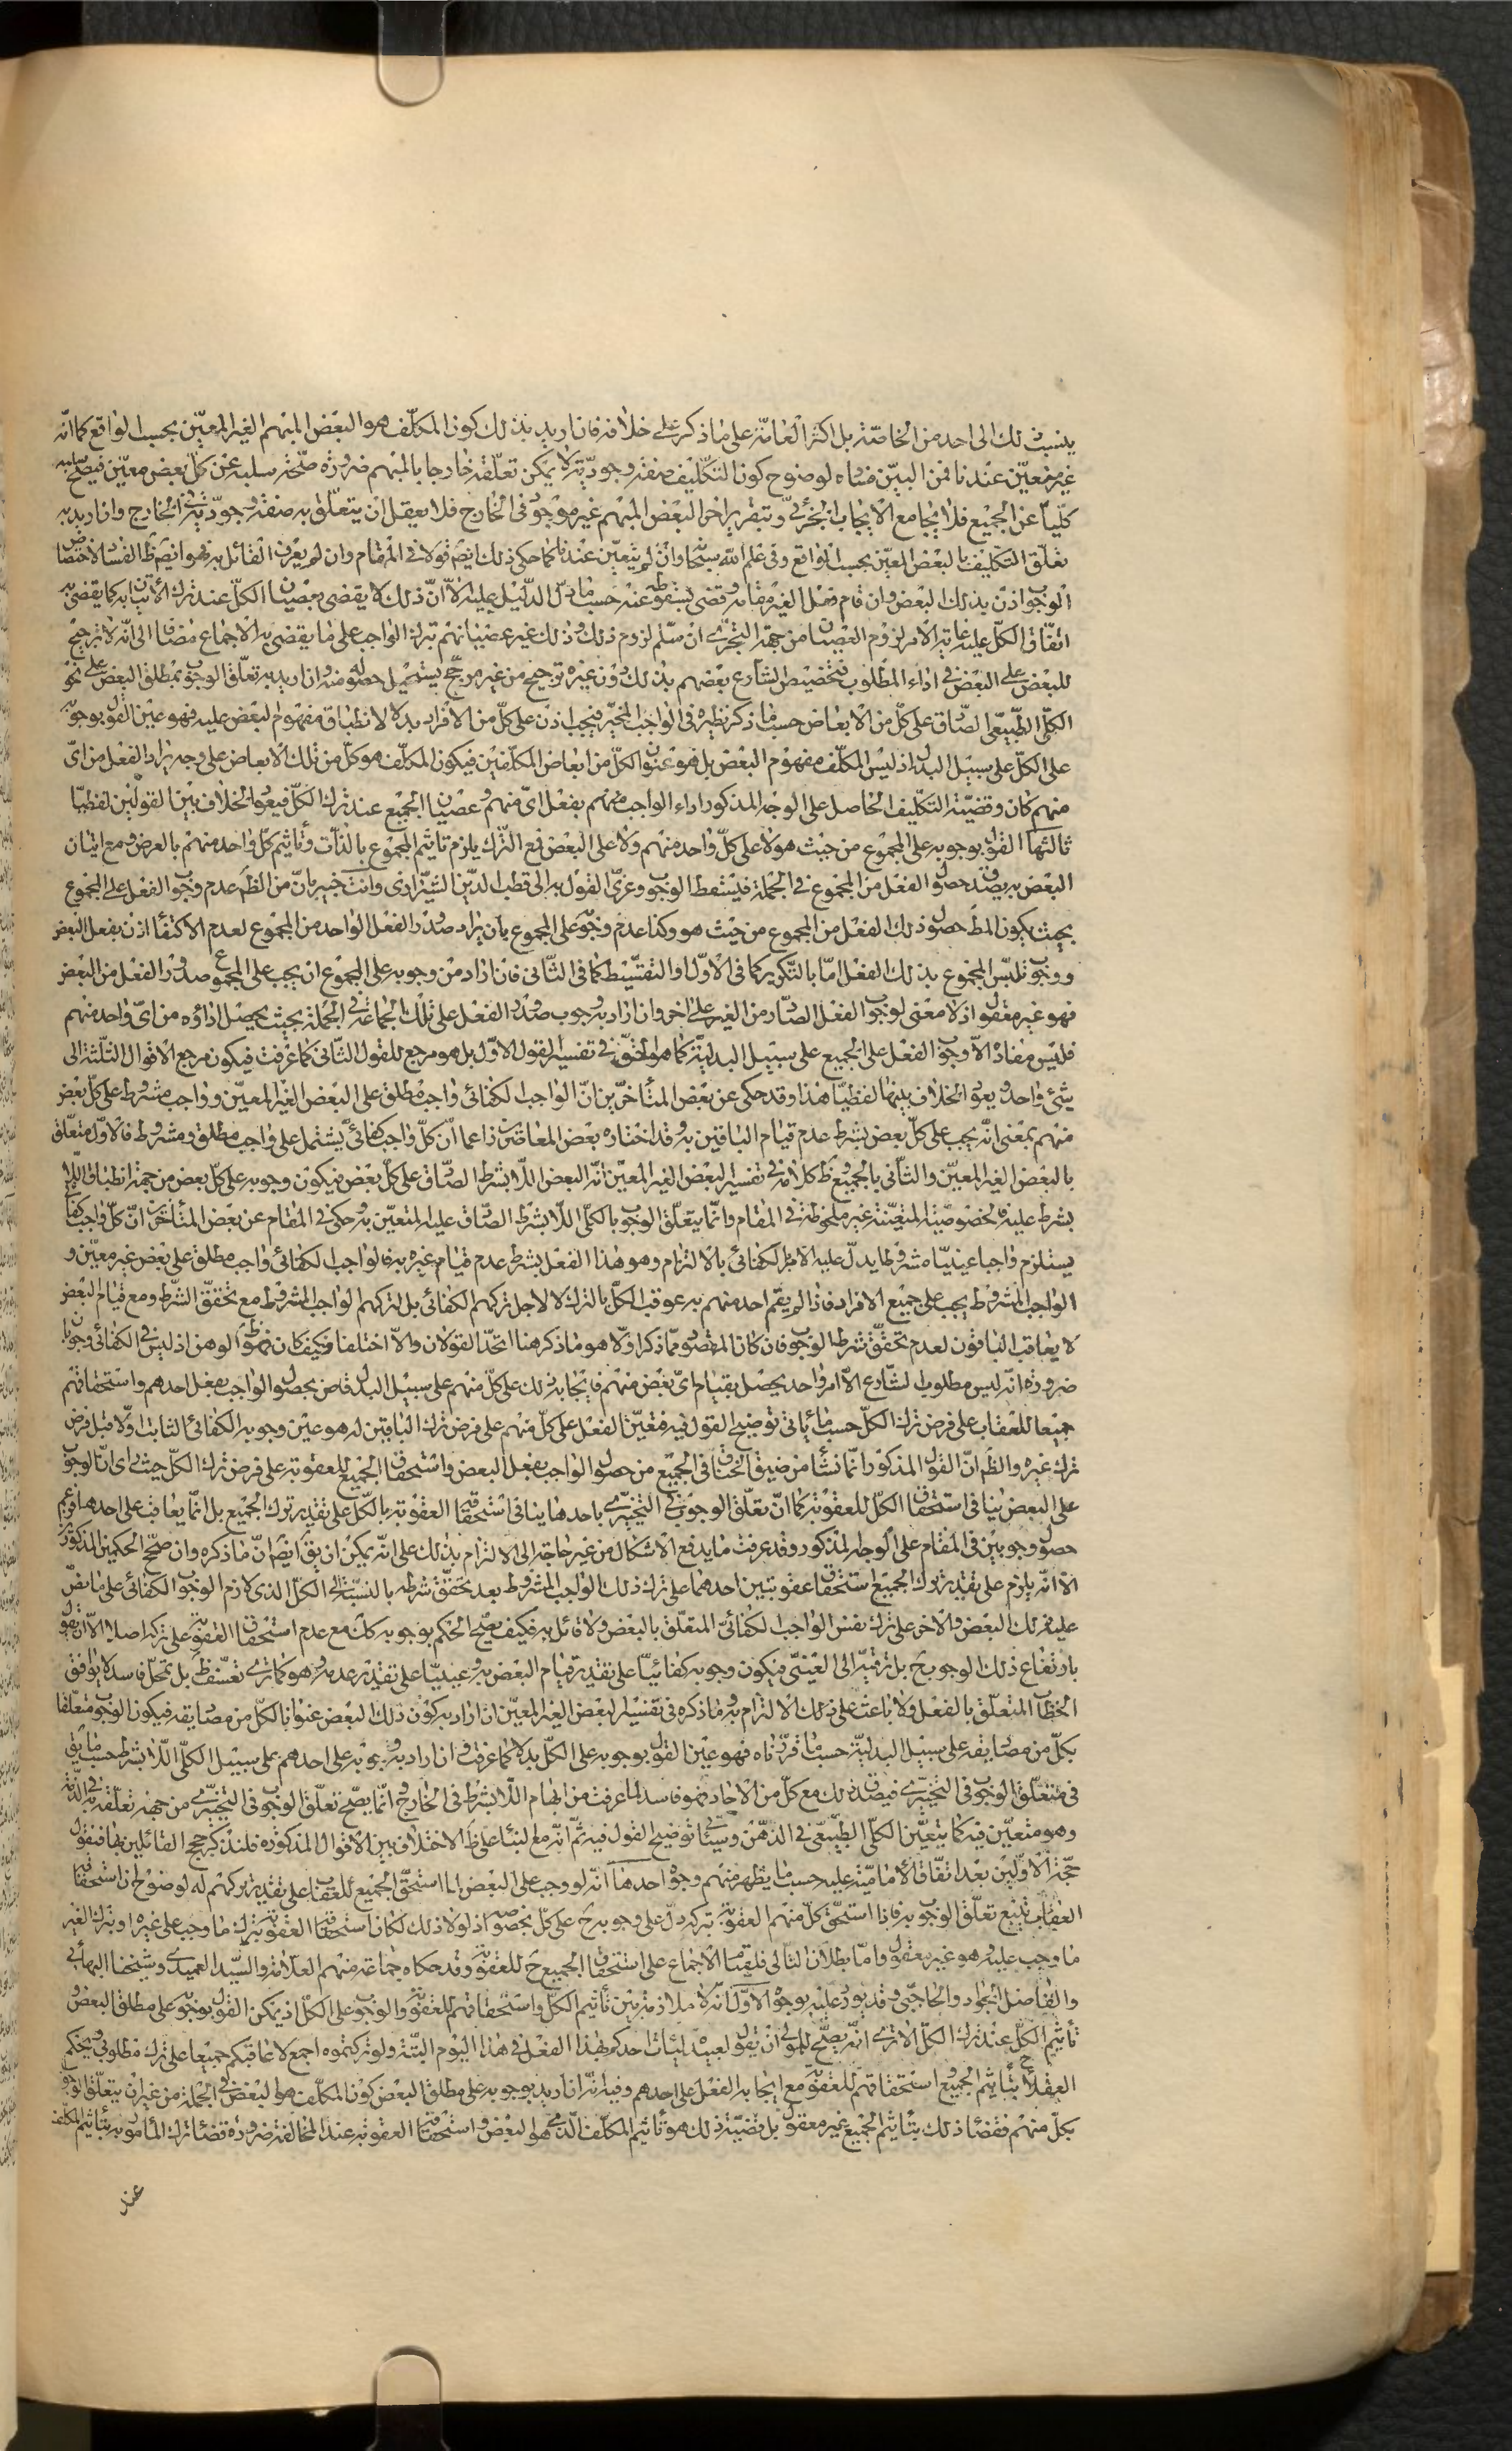 ينسب ذلك الى احد من الخاصّة بل اكثر العامّة على ما ذكر على خلافه فان اريد بذلك كون المكلّف هو البعض المبهم الغير المعيّن بحسب الواقع كما انّه
غير معيّن عندنا فمن البيّن فساده لوضوح كون التكليف صفة وجوديّة لا يمكن تعلّقه خارجا بالمبهم ضرورة صحّة سلبه عن كلّ بعض معيّن فيصحّ سلبه
كليّا عن الجميع فلا يجامع الايجاب الجزئىّ وبتقرير اخر البعض المبهم غير موجود فى الخارج فلا يعقل ان يتعلّق به صفة وجوديّة فى الخارج وان اريد به
تعلّق التكليف بالبعض المعيّن بحسب الواقع وفى علم اللّه سبحانه وان لم يتعيّن عندنا كما حكى ذلك ايضا قولا فى المقام وان لم يعرف القائل به فهو ايضا ظ الفساد لاختصاص
الوجوب اذن بذلك البعض وان قام فعل الغير مقامه وقضى بسقوطه عنه حسب ما دلّ الدّليل عليه الاّ انّ ذلك لا يقضى بعصيان الكلّ عند ترك الاتيان به كما يقضى به
اتّفاق الكلّ عليه غاية الامر لزوم العصيان من جهة التجرّى ان سلّم لزوم ذلك وذلك غير عصيانهم بترك الواجب على ما يقضى به الاجماع مضافا الى انّه لا ترجيح
للبعض على البعض فى اداء المطلوب فتخصيص الشارع بعضهم بذلك دون غيره ترجيح من غير مرجّح يستحيل حصوله منه وان اريد به تعلّق الوجوب بمطلق البعض على نحو
الكلّى الطّبيعى الصّادق على كلّ من الابعاض حسب ما ذكر نظيره فى الواجب المخيّر فيجب اذن على كلّ من الافراد بدلا لانطباق مفهوم البعض عليه فهو عين القول بوجوبه
على الكلّ على سبيل البدل اذ ليس المكلّف مفهوم البعض بل هو عنوان لكلّ من ابعاض المكلّفين فيكون المكلّف هو كلّ من تلك الابعاض على وجه يراد الفعل من اىّ
منهم كان وقضيّة التكليف الحاصل على الوجه المذكور اداء الواجب منهم بفعل اىّ منهم وعصيان الجميع عند ترك الكلّ فيعود الخلاف بين القولين لفظيّا
ثالثها القول بوجوبه على المجموع من حيث هو لا على كلّ واحد منهم ولا على البعض فمع الترك يلزم تاثيم المجموع بالذّات وتأثيم كلّ واحد منهم بالعرض ومع اتيان
البعض به يصدق حصول الفعل من المجموع فى الجملة فيسقط الوجوب وعزى القول به الى قطب الدّين الشّيرازى وانت خبير بانّ من الظّ عدم وجوب الفعل على المجموع
بحيث يكون المط حصول ذلك الفعل من المجموع من حيث هو وكذا عدم وجوبه على المجموع بأن يراد صدور الفعل الواحد من المجموع لعدم الاكتفاء اذن بفعل البعض
ووجوب تلبّس المجموع بذلك الفعل امّا بالتّكرير كما فى الاوّل او التقسيط كما فى الثّانى فان اراد من وجوبه على المجموع ان يجب على المجموع صدور الفعل من البعض
فهو غير معقول اذ لا معنى لوجوب الفعل الصّادر من الغير على اخر وان اراد به وجوب صدور الفعل على تلك الجماعة فى الجملة بحيث يحصل اداؤه من اىّ واحد منهم
فليس مفاده الاّ وجوب الفعل على الجميع على سبيل البدليّة كما هو الحقّ فى تفسير القول الاوّل بل هو مرجع للقول الثّانى كما عرفت فيكون مرجع الاقوال الثّلثة الى
شىء واحد ويعود الخلاف بينها لفظيّا هذا وقد حكى عن بعض المتأخّرين انّ الواجب الكفائى واجب مطلق على البعض الغير المعيّن وواجب مشروط على كلّ بعض
منهم بمعنى انّه يجب على كلّ بعض بشرط عدم قيام الباقين به وقد اختاره بعض المعاصرين زاعما انّ كلّ واجب كفائىّ يشتمل على واجب مطلق ومشروط فالاوّل متعلّق
بالبعض الغير المعيّن والثّانى بالجميع وظ كلامه فى تفسير البعض الغير المعيّن انّه البعض اللّا بشرط الصّادق على كلّ بعض فيكون وجوبه على كلّ بعض من جهة انطباق اللّا
بشرط عليه والخصوصيّة المتعيّنة غير ملحوظة فى المقام وانّما يتعلّق الوجوب بالكلّى اللّا بشرط الصّادق عليه المتعيّن به وحكى فى المقام عن بعض المتأخرين انّ كلّ واجب كفائى
يستلزم واجبا عينيّا مشروطا يدلّ عليه الامر الكفائى بالالتزام وهو هذا الفعل بشرط عدم قيام غيره به فالواجب الكفائى واجب مطلق على بعض غير معيّن و
الواجب المشروط يجب على جميع الافراد فاذا لم يقم احد منهم به عوقب الكلّ بالترك لا لاجل تركهم الكفائى بل لتركهم الواجب المشروط مع تحقّق الشّرط ومع قيام البعض
لا يعاقب الباقون لعدم تحقّق شرط الوجوب فان كان المقصود ممّا ذكر اوّلا هو ما ذكر هنا اتّحد القولان والاّ اختلفا وكيف كان فهو ظ الوهن اذ ليس فى الكفائى وجوبان
ضرورة انّه ليس مطلوب الشّارع الاّ امر واحد يحصل بقيام اىّ بعض منهم فايجابه ذلك على كلّ منهم على سبيل البدل قاض بحصول الواجب بفعل احدهم واستحقاقهم
جميعا للعقاب على فرض ترك الكلّ حسب ما يأتى توضيح القول فيه فتعيّن الفعل على كلّ منهم على فرض ترك الباقين له هو عين وجوبه الكفائى الثابت اوّلا قبل فرض
ترك غيره والظّ انّ القول المذكور انّما نشأ من ضيق الخناق فى الجميع من حصول الواجب بفعل البعض واستحقاق الجميع للعقوبة على فرض ترك الكلّ حيث راى انّ الوجوب
على البعض ينافى استحقاق الكلّ للعقوبة كما انّ تعلّق الوجوب فى التخييرى باحدها ينافى استحقاق العقوبة بالكلّ على تقدير ترك الجميع بل انّما يعاقب على احدها فزعم
حصول وجوبين فى المقام على الوجه المذكور وقد عرفت ما يدفع الاشكال من غير حاجة الى الالتزام بذلك على انّه يمكن ان يقال ايضا انّ ما ذكره وان صحّح الحكمين المذكورين
الاّ انّه يلزم على تقدير ترك الجميع استحقاق عقوبتين احدهما على ترك ذلك الواجب المشروط بعد تحقّق شرطه بالنسبة الى الكلّ الذى لازم الوجوب الكفائى على ما نصّ
عليه ذلك البعض والاخر على ترك نفس الواجب الكفائى المتعلّق بالبعض ولا قائل به فكيف يصحّ الحكم بوجوبه كك مع عدم استحقاق العقوبة على تركه اصلا الاّ ان يقول
بارتفاع ذلك الوجوب ح بل ترقّيه الى العينىّ فيكون وجوبه كفائيّا على تقدير قيام البعض به وعينيّا على تقدير عدمه وهو كما ترى تعسّف ظ بل تمحّل فاسد لا يوافق
الخطاب المتعلّق بالفعل ولا باعث على ذلك الالتزام به وما ذكره فى تفسير البعض الغير المعيّن ان اراد به كون ذلك البعض عنوانا لكلّ من مصاديقه فيكون الوجوب متعلّقا
بكلّ من مصاديقه على سبيل البدليّة حسب ما قرّرناه فهو عين القول بوجوبه على الكلّ بدلا كما عرفت وان اراد به وجوبه على احدهم على سبيل الكلّى اللّا بشرط حسب ما يق
فى متعلّق الوجوب فى التخييرى فيصدق ذلك مع كلّ من الاحاد فهو فاسد لما عرفت من ابهام اللّا بشرط فى الخارج وانّما يصحّ تعلّق الوجوب فى التخييرى من جهة تعلّقه به فى الذمّة
وهو متعيّن فيه كما يتعيّن الكلّى الطّبيعى فى الذّهن وسيأتى توضيح القول فيه ثمّ انّه لم يبتنا على ظ الاختلاف بين الاقوال المذكورة فلنذكر حجج القائلين بها فنقول
حجّة الاوّلين بعد اتّفاق الاماميّة عليه حسب ما يظهر منهم وجوه احدها انّه لو وجب على البعض لما استحقّ الجميع للعقاب على تقدير تركهم له لوضوح ان استحقاق
العقاب يتبع تعلّق الوجوب به فاذا استحقّ كلّ منهم العقوبة بتركه دلّ على وجوبه ح على كلّ بخصوصه اذ لولا ذلك لكان استحقاق العقوبة بترك ما وجب على غيره او بترك الغير
ما وجب عليه وهو غير معقول وامّا بطلان التّالى فلقيام الاجماع على استحقاق الجميع ح للعقوبة وقد حكاه جماعة منهم العلاّمة والسّيد العميدى وشيخنا البهائى
والفاضل الجواد والحاجبى وقد يورد عليه بوجوه الاوّل انّه لا ملازمة بين تأثيم الكلّ واستحقاقهم للعقوبة والوجوب على الكلّ اذ يمكن القول بوجوبه على مطلق البعض و
تأثيم الكلّ عند ترك الكلّ الا ترى انّه يصحّ للمولى ان يقول لعبيده ليأت احدكم بهذا الفعل فى هذا اليوم البتّة ولو تركتموه اجمع لاعاقبكم جميعا على ترك مطلوبى فيحكم
العقلاء بتأثيم الجميع واستحقاقهم للعقوبة مع ايجابه الفعل على احدهم وفيه انّه ان اريد بوجوبه على مطلق البعض كون المكلّف هو البعض فى الجملة من غير ان يتعلّق الوجوب
بكلّ منهم فقضاء ذلك بتأثيم الجميع غير معقول بل قضيّة ذلك هو تأثيم المكلّف الّذى هو البعض واستحقاق العقوبة عند المخالفة ضرورة قضاء ترك المأمور به بتأثيم المكلّف
عند